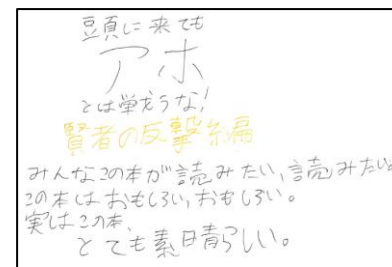 豆頁に来ても
アホ
とは単戈うな!
賢者の反撃糸扁
みんなこの本が読みたい,読みたい。
この本はおもしろい,おもしろい。
実はこの本、
とても素日青らしい。